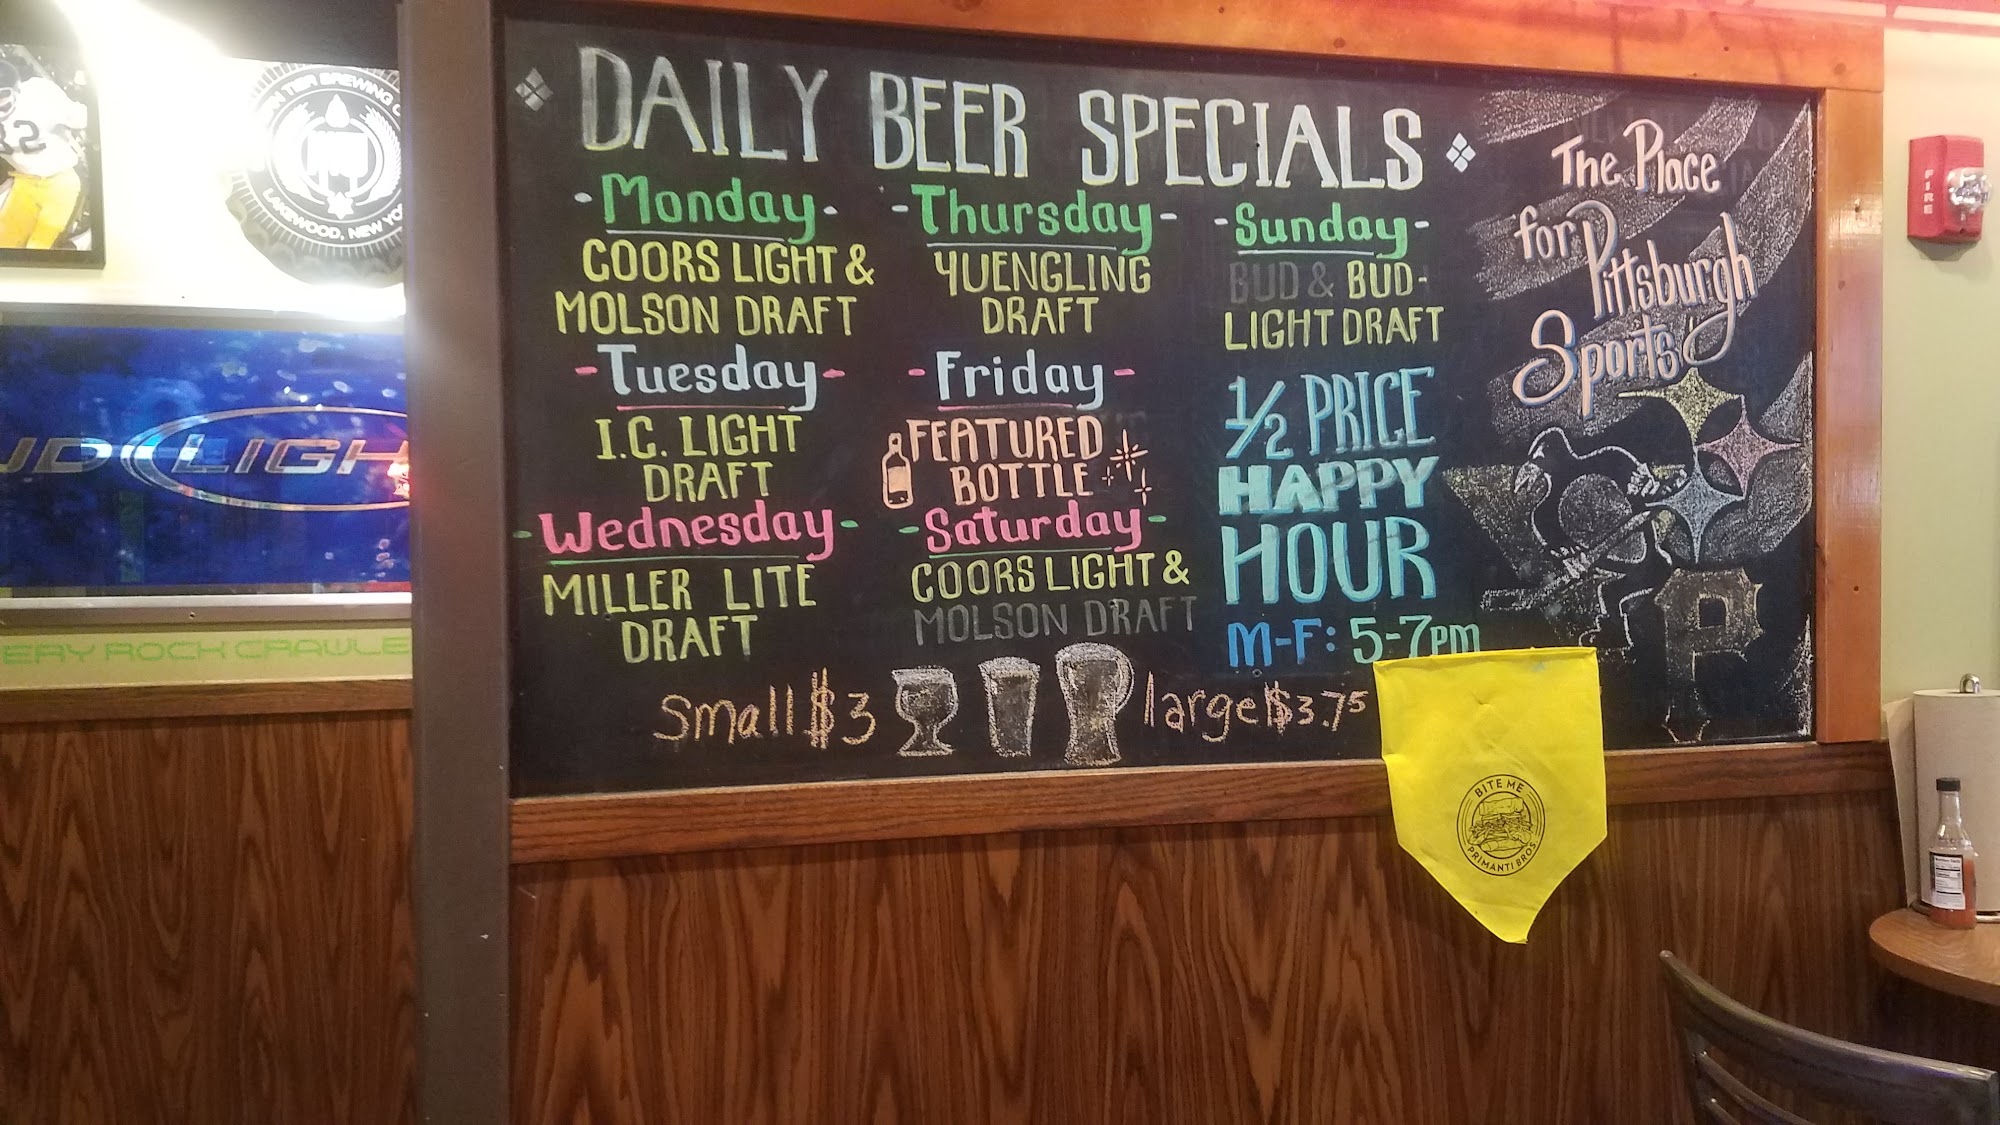 DAILY BEER SPECIALS
-Monday-
COORS LIGHT &
MOLSON DRAFT
-Tuesday-
I.C. LIGHT
DRAFT
-Wednesday-
MILLER LITE
DRAFT
-Thursday-
YUENGLING
DRAFT
-Friday-
FEATURED
BOTTLE
-Saturday-
COORS LIGHT &
MOLSON DRAFT
-Sunday-
BUD & BUD-
LIGHT DRAFT
1/2 PRICE
HAPPY
HOUR
M-F: 5-7pm
small $3
large $3.75
The Place
for Pittsburgh
Sports
P
BITE ME
PRIMANTI BROS
FIRE
TIER BREWING CO
LAKEWOOD, NEW YO
UD LIGH
ERY ROCK CRAWLE